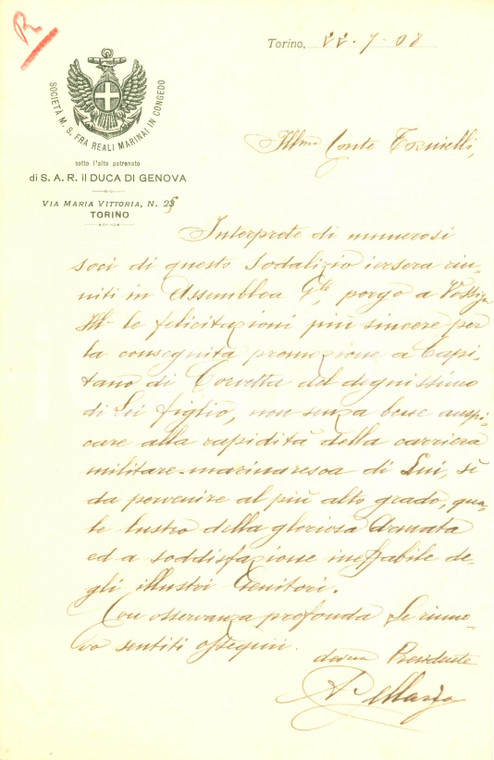 R
Torino, 22-7-08
SOCIETÀ M. S. FRA REALI MARINAI IN CONGEDO
sotto l'alto patronato
di S. A. R. il DUCA DI GENOVA
VIA MARIA VITTORIA, N. 25
TORINO
Illmo Conte Tornielli,
Interprete di numerosi
soci di questo sodalizio iersera riu-
niti in Assemblea Gle, porgo a Vossign.
Ill. le felicitazioni più sincere per
la conseguita promozione a Capi-
tano di Corvetta del degnissimo
di Lei figlio, non senza bene auspi-
care alla rapidità della carriera
militare-marinaresca di Lui, sì
da pervenire al più alto grado, qua-
le lustro della gloriosa Armata
ed a soddisfazione ineffabile de-
gli illustri Genitori.
Con osservanza profonda Le rinno-
vo sentiti ossequii.
Presidente